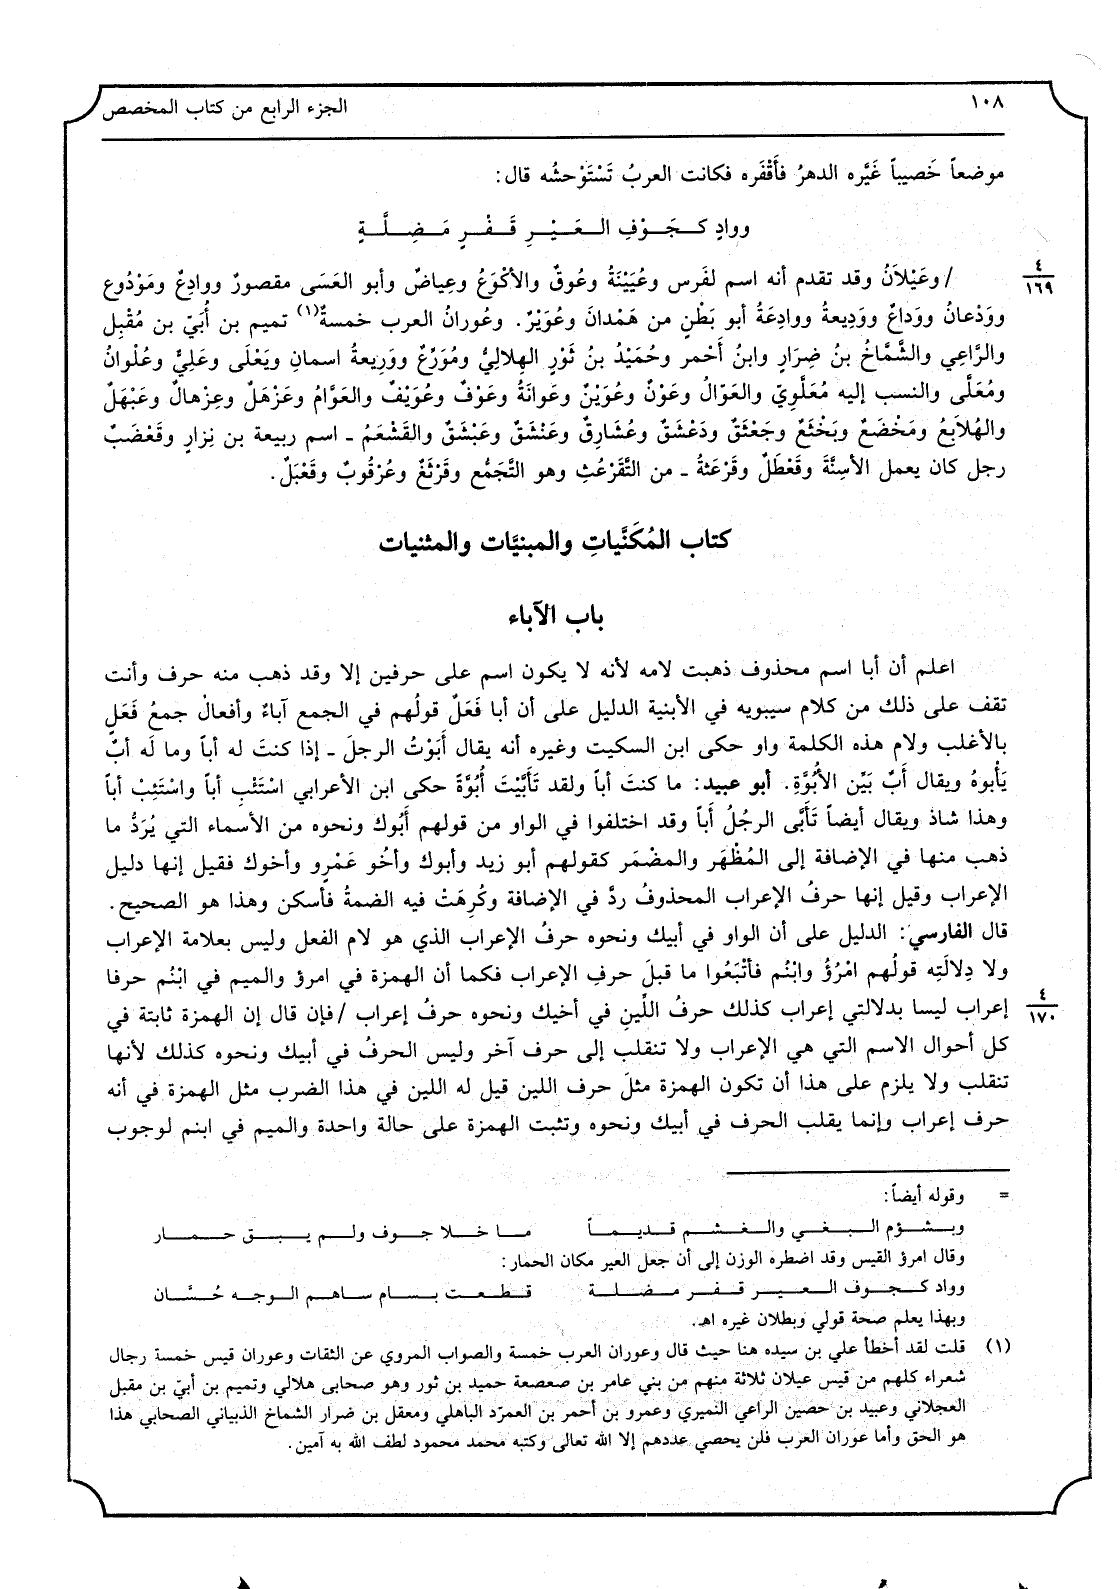 ١٠٨ الجزء الرابع من كتاب المخصص
موضعاً خَصيباً غَيَّره الدهرُ فأَقْفَره فكانت العربُ تَسْتَوْحشُه قال:
ووادٍ كـجَـوْفِ الـعَـيْـرِ قَـفْـرٍ مَـضِـلَّـةٍ
٤
١٦٩
/ وعَيْلاَنُ وقد تقدم أنه اسم لفَرس وعُيَيْنَةُ وعُوقٌ والأكْوَعُ وعِياضٌ وأبو العَسَى مقصورٌ ووادِعٌ ومَوْدُوع
ووَدْعانُ ووَداعٌ ووَدِيعةُ ووادِعَةُ أبو بَطْنٍ من هَمْدانَ وعُوَيْرٌ. وعُورانُ العرب خمسةٌ(١) تميم بن أُبَيّ بن مُقْبِل
والرَّاعِي والشَّمَّاخُ بنُ ضِرَارٍ وابنُ أَحْمر وحُمَيْدُ بنُ ثَوْرٍ الهِلاليُّ ومُوَرِّعٌ ووَرِيعةُ اسمان ويَعْلَى وعَلِيٌّ وعُلْوانُ
ومُعَلَّى والنسب إليه مُعَلَّوِيّ والعَوّالُ وعَوْنٌ وعُوَيْنٌ وعَوانَةُ وعَوْفٌ وعُوَيْفٌ والعَوَّامُ وعَزْهَلٌ وعِزْهالٌ وعَبْهَلٌ
والهُلاَبِعُ ومَخْضَعٌ وبَخْثَعٌ وجَعْثَقٌ ودَعْشَقٌ وعُشارِقٌ وعَنْشَقٌ وعَبْشَقٌ والقَشْعَمُ ـ اسم ربيعة بن نِزارٍ وقَعْضَبٌ
رجل كان يعمل الأسِنَّةَ وقَعْطَلٌ وقَرْعَثةُ ـ من التَّقَرْعُثِ وهو التَّجَمُّع وقَرْثَعٌ وعُرْقُوبٌ وقَعْبَلٌ.
كتاب المُكَنَّياتِ والمبنيَّات والمثنيات
باب الآباء
اعلم أن أبا اسم محذوف ذهبت لامه لأنه لا يكون اسم على حرفين إلا وقد ذهب منه حرف وأنت
تقف على ذلك من كلام سيبويه في الأبنية الدليل على أن أبا فَعَلٌ قولُهم في الجمع آباءٌ وأفعالٌ جمعُ فَعَلٍ
بالأغلب ولام هذه الكلمة واو حكى ابن السكيت وغيره أنه يقال أَبَوْتُ الرجلَ ـ إذا كنتَ له أباً وما لَه أبٌ
يَأْبوهُ ويقال أَبٌ بَيِّن الأُبُوَّةِ. أبو عبيد: ما كنتَ أباً ولقد تَأَبَّيْتَ أُبُوَّةً حكى ابن الأعرابي اسْتَئْبِ أباً واسْتَئِبْ أباً
وهذا شاذ ويقال أيضاً تَأَبَّى الرجُلُ أَباً وقد اختلفوا في الواو من قولهم أَبُوك ونحوه من الأسماء التي يُرَدُّ ما
ذهب منها في الإضافة إلى المُظْهَر والمضْمَر كقولهم أبو زيد وأبوك وأخُو عَمْرٍو وأخوك فقيل إنها دليل
الإعراب وقيل إنها حرفُ الإعراب المحذوفُ ردَّ في الإضافة وكُرِهَتْ فيه الضمةُ فأسكن وهذا هو الصحيح.
قال الفارسي: الدليل على أن الواو في أبيك ونحوه حرفُ الإعراب الذي هو لام الفعل وليس بعلامة الإعراب
ولا دِلالَتِه قولُهم امْرُؤٌ وابْنُم فأتْبَعُوا ما قبلَ حرفِ الإعراب فكما أن الهمزة في امرؤ والميم في ابْنُم حرفا
إعراب ليسا بدلالتي إعراب كذلك حرفُ اللِّينِ في أخيك ونحوه حرفُ إعراب / فإن قال إن الهمزة ثابتة في
٤
١٧٠
كل أحوال الاسم التي هي الإعراب ولا تنقلب إلى حرف آخر وليس الحرفُ في أبيك ونحوه كذلك لأنها
تنقلب ولا يلزم على هذا أن تكون الهمزة مثلَ حرف اللين قيل له اللين في هذا الضرب مثل الهمزة في أنه
حرف إعراب وإنما يقلب الحرف في أبيك ونحوه وتثبت الهمزة على حالة واحدة والميم في ابنم لوجوب
= وقوله أيضاً:
وبـشـؤم الـبـغـي والـغـشـم قـديـمـاً مـا خـلا جـوف ولـم يـبـق حـمـار
وقال امرؤ القيس وقد اضطره الوزن إلى أن جعل العير مكان الحمار:
وواد كـجـوف الـعـيـر قـفـر مـضـلـة قـطـعـت بـسـام سـاهـم الـوجـه حُـسَّـان
وبهذا يعلم صحة قولي وبطلان غيره اهـ.
(١) قلت لقد أخطأ علي بن سيده هنا حيث قال وعوران العرب خمسة والصواب المروي عن الثقات وعوران قيس خمسة رجال
شعراء كلهم من قيس عيلان ثلاثة منهم من بني عامر بن صعصعة حميد بن ثور وهو صحابى هلالي وتميم بن أبيّ بن مقبل
العجلاني وعبيد بن حصين الراعي النميري وعمرو بن أحمر بن العمرّد الباهلي ومعقل بن ضرار الشماخ الذبياني الصحابي هذا
هو الحق وأما عوران العرب فلن يحصي عددهم إلا الله تعالى وكتبه محمد محمود لطف الله به آمين.